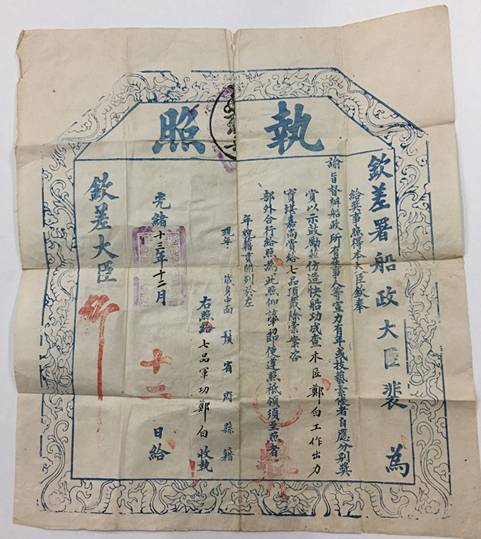 執照
欽差署船政大臣裴 為
給奬事照得本大臣欽奉
諭旨督辦船政所有在事人等出力有年或技藝素優者自應分別奬
賞以示鼓勵茲仿造快船功成查木匠鄭白工作出力
實堪嘉尚賞給七品頂戴除彙案咨
部外合行給照為此照仰該軍功即便遵照祗領須至照者
年貌籍貫開列於左
現年 歲身中面 鬚 省府縣籍
右照給七品軍功鄭白收執
光緒十三年十二月 日給
欽差大臣